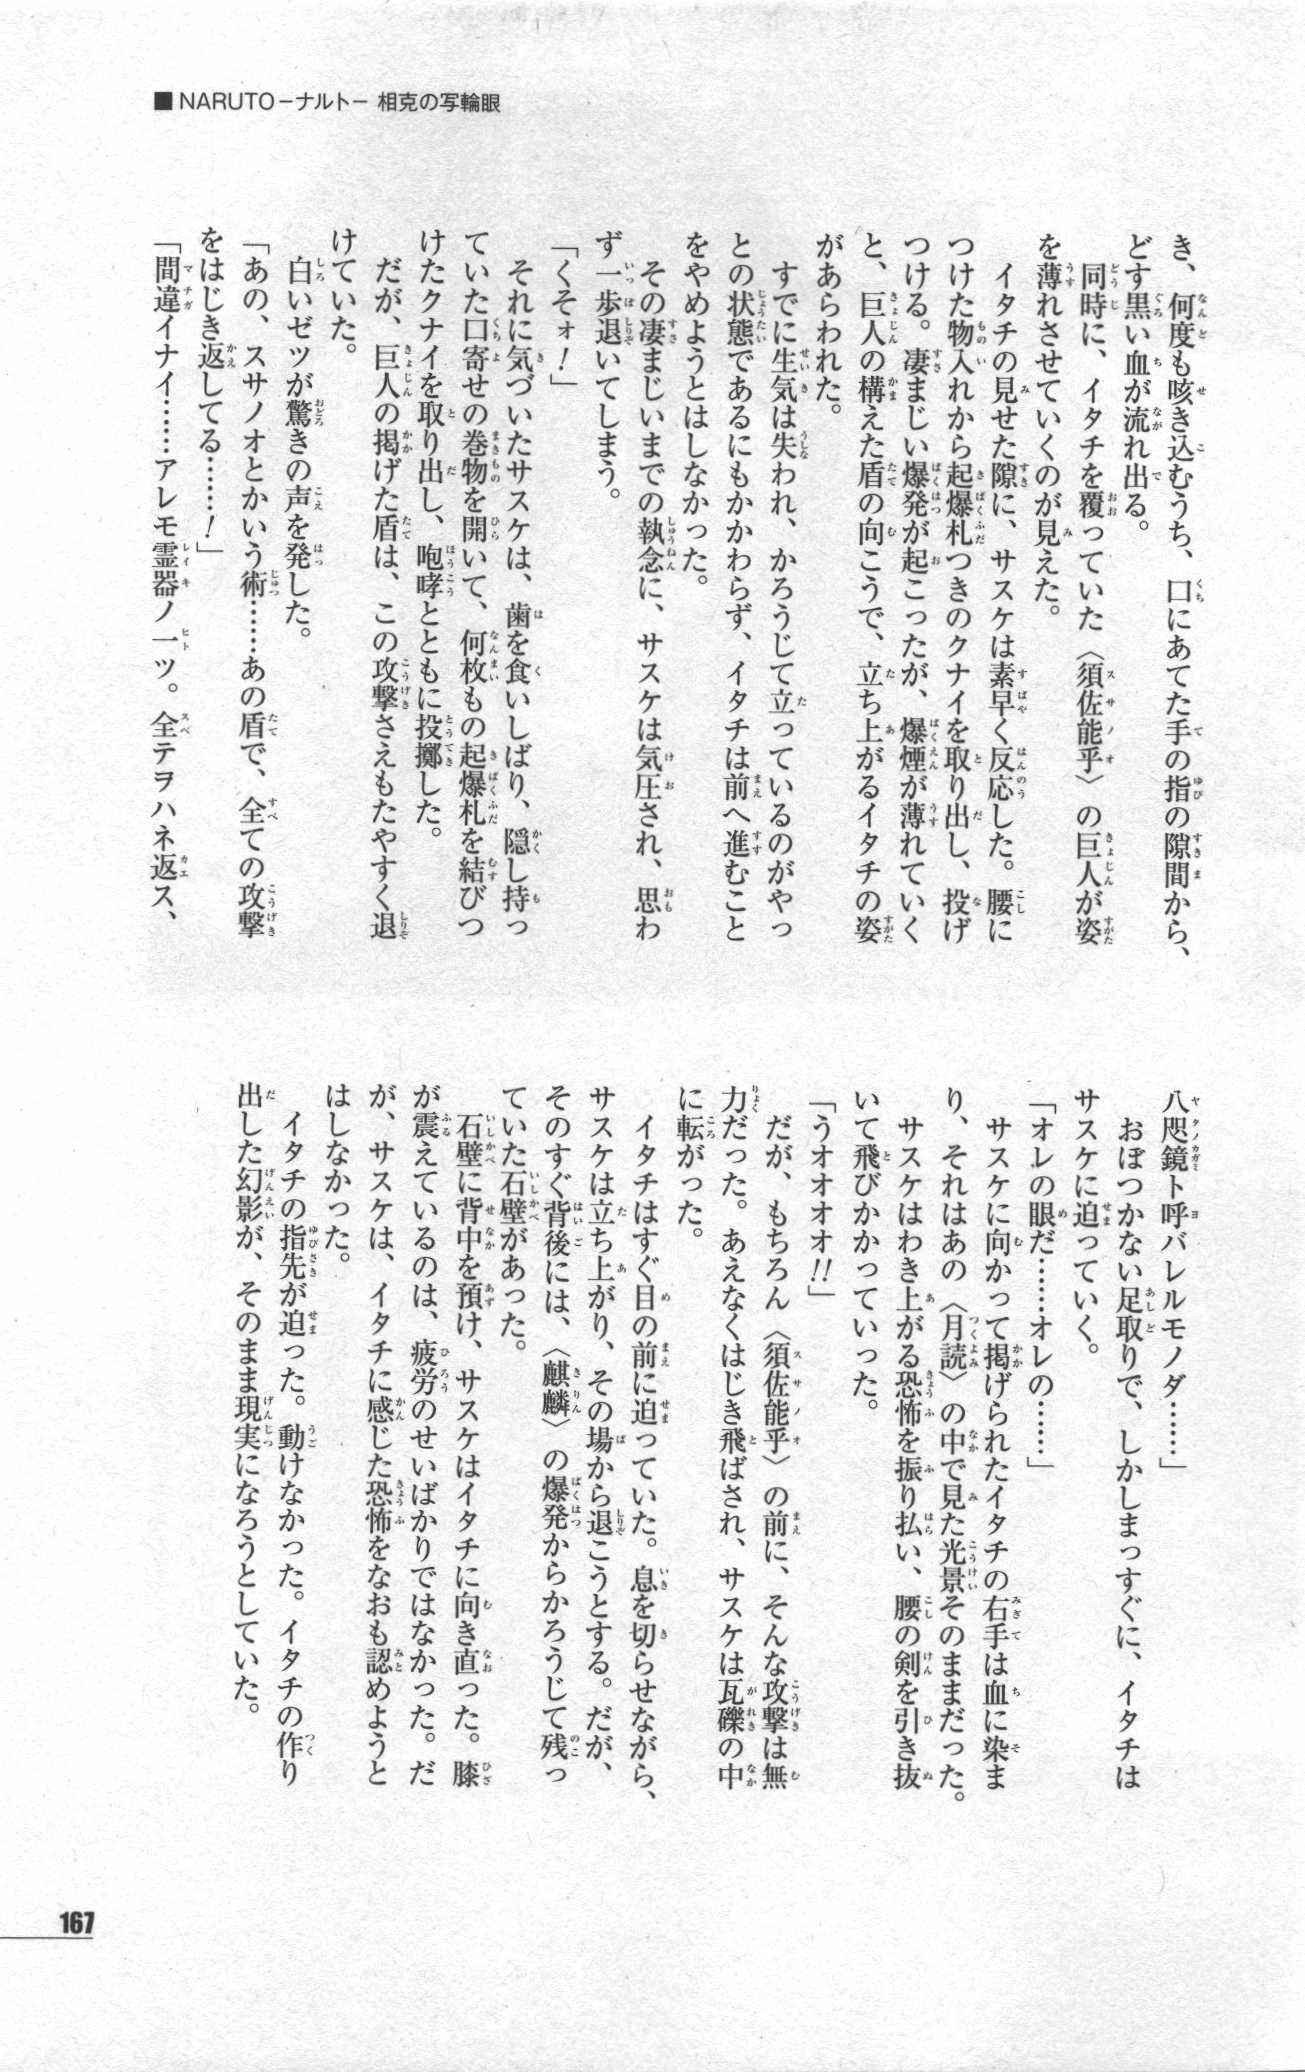 ■NARUTO－ナルト－ 相克の写輪眼
き、何度も咳き込むうち、口にあてた手の指の隙間から、
どす黒い血が流れ出る。
同時に、イタチを覆っていた〈須佐能乎〉の巨人が姿
を薄れさせていくのが見えた。
イタチの見せた隙に、サスケは素早く反応した。腰に
つけた物入れから起爆札つきのクナイを取り出し、投げ
つける。凄まじい爆発が起こったが、爆煙が薄れていく
と、巨人の構えた盾の向こうで、立ち上がるイタチの姿
があらわれた。
すでに生気は失われ、かろうじて立っているのがやっ
との状態であるにもかかわらず、イタチは前へ進むこと
をやめようとはしなかった。
その凄まじいまでの執念に、サスケは気圧され、思わ
ず一歩退いてしまう。
「くそォ！」
それに気づいたサスケは、歯を食いしばり、隠し持っ
ていた口寄せの巻物を開いて、何枚もの起爆札を結びつ
けたクナイを取り出し、咆哮とともに投擲した。
だが、巨人の掲げた盾は、この攻撃さえもたやすく退
けていた。
白いゼツが驚きの声を発した。
「あの、スサノオとかいう術……あの盾で、全ての攻撃
をはじき返してる……！」
「間違イナイ……アレモ霊器ノ一ツ。全テヲハネ返ス、
八咫鏡ト呼バレルモノダ……」
おぼつかない足取りで、しかしまっすぐに、イタチは
サスケに迫っていく。
「オレの眼だ……オレの……」
サスケに向かって掲げられたイタチの右手は血に染ま
り、それはあの〈月読〉の中で見た光景そのままだった。
サスケはわき上がる恐怖を振り払い、腰の剣を引き抜
いて飛びかかっていった。
「うオオオオ!!」
だが、もちろん〈須佐能乎〉の前に、そんな攻撃は無
力だった。あえなくはじき飛ばされ、サスケは瓦礫の中
に転がった。
イタチはすぐ目の前に迫っていた。息を切らせながら、
サスケは立ち上がり、その場から退こうとする。だが、
そのすぐ背後には、〈麒麟〉の爆発からかろうじて残っ
ていた石壁があった。
石壁に背中を預け、サスケはイタチに向き直った。膝
が震えているのは、疲労のせいばかりではなかった。だ
が、サスケは、イタチに感じた恐怖をなおも認めようと
はしなかった。
イタチの指先が迫った。動けなかった。イタチの作り
出した幻影が、そのまま現実になろうとしていた。
167